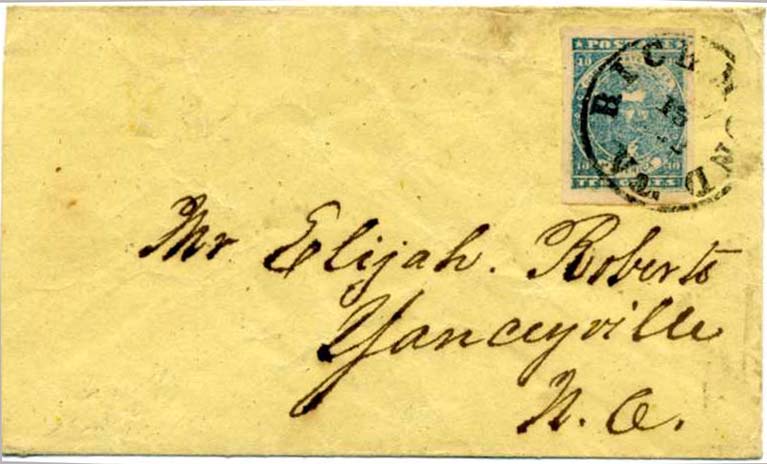 POSTAGE
10 10
10 10
TEN CENTS
RICHMOND
VA
15
Mr Elijah. Roberts
Yanceyville
N. C.